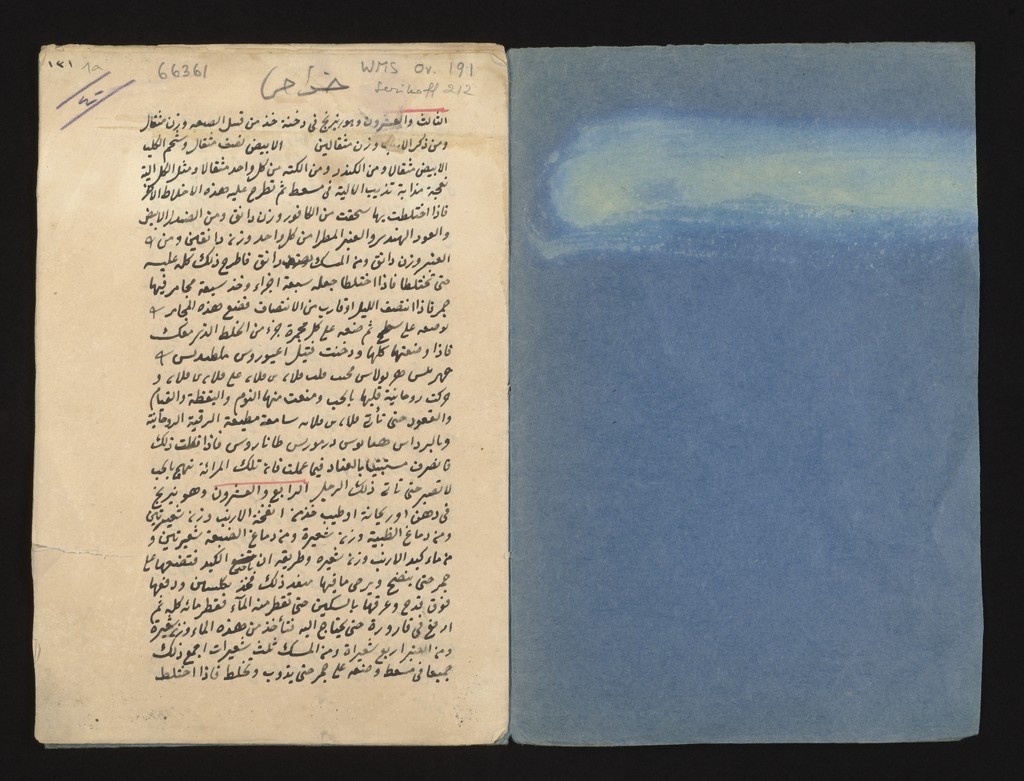 ١٢١ 1a
66361
خواص
WMS Or. 191
Serikoff 212
الثالث والعشرون وهو نيرنج في دخنة خذ من قسل الصعه وزن مثقال
ومن ذكر الارنب وزن مثقالين الابيض نصف مثقال وشحم الكلب
الابيض مثقالا ومن الكندر ومن الكته من كل واحد مثقالا ومثل الكل الية
نعجة مذابة تذيب الالية في مسعط ثم تطرح عليه هذه الاخلاط الاخر
فاذا اختلطت بها سحقت من الكافور وزن دانق ومن الصندل الابيض
والعود الهندي والعنبر المطرا من كل واحد وزن دانقين ومن
العنبر وزن دانق ومن المسك دانق فاطرح ذلك كله عليه
حتى تختلطا فاذا اختلطا جعله سبعة اجزاء وخذ سبعة مجامر فيها
جمر فاذا انتصف الليل او قارب من الانتصاف فضع هذه المجامر
توضعه على سطح ثم ضعه على كل مجمرة جزء من الخلط الذي معك
فاذا وضعتها كلها ودخنت فقيل
حركت روحانية قلبها بالحب ومنعت منها النوم واليقظة والقيام
والقعود حتى تأتي فلان بن فلانه سامعة مطيعة الرقية الروحانية
طاناروس فاذا فعلت ذلك
فانصرف فيما عملت فان تلك المرأة تهيج بالحب
لا تصبر حتى تاتي ذلك الرجل الرابع والعشرون وهو نيرنج
في دهن او ريحانة او طيب خذ من انفحة الارنب وزن شعيرتين
ومن دماغ الظبية وزن شعيرة ومن دماغ الضبعة شعيرتين و
من ماء كبد الارنب وزن شعيره وطريقه ان الكبد فتضعها على
جمر حتى ينضج ويرمى ما فيها فخذ ودفعها
فوق قدح وعرقها بالسكين حتى تقطر منه المآء فقطر مائه كله ثم
ارفع في قارورة حتى يحتاج اليه فتأخذ من هذه الماء وزن شعيرة
ومن العنبر اربع شعيراة ومن المسك ثلث شعيرات اجمع ذلك
جميعا في مسعط وضعه على جمر حتى يذوب وتخلط فاذا اختلط